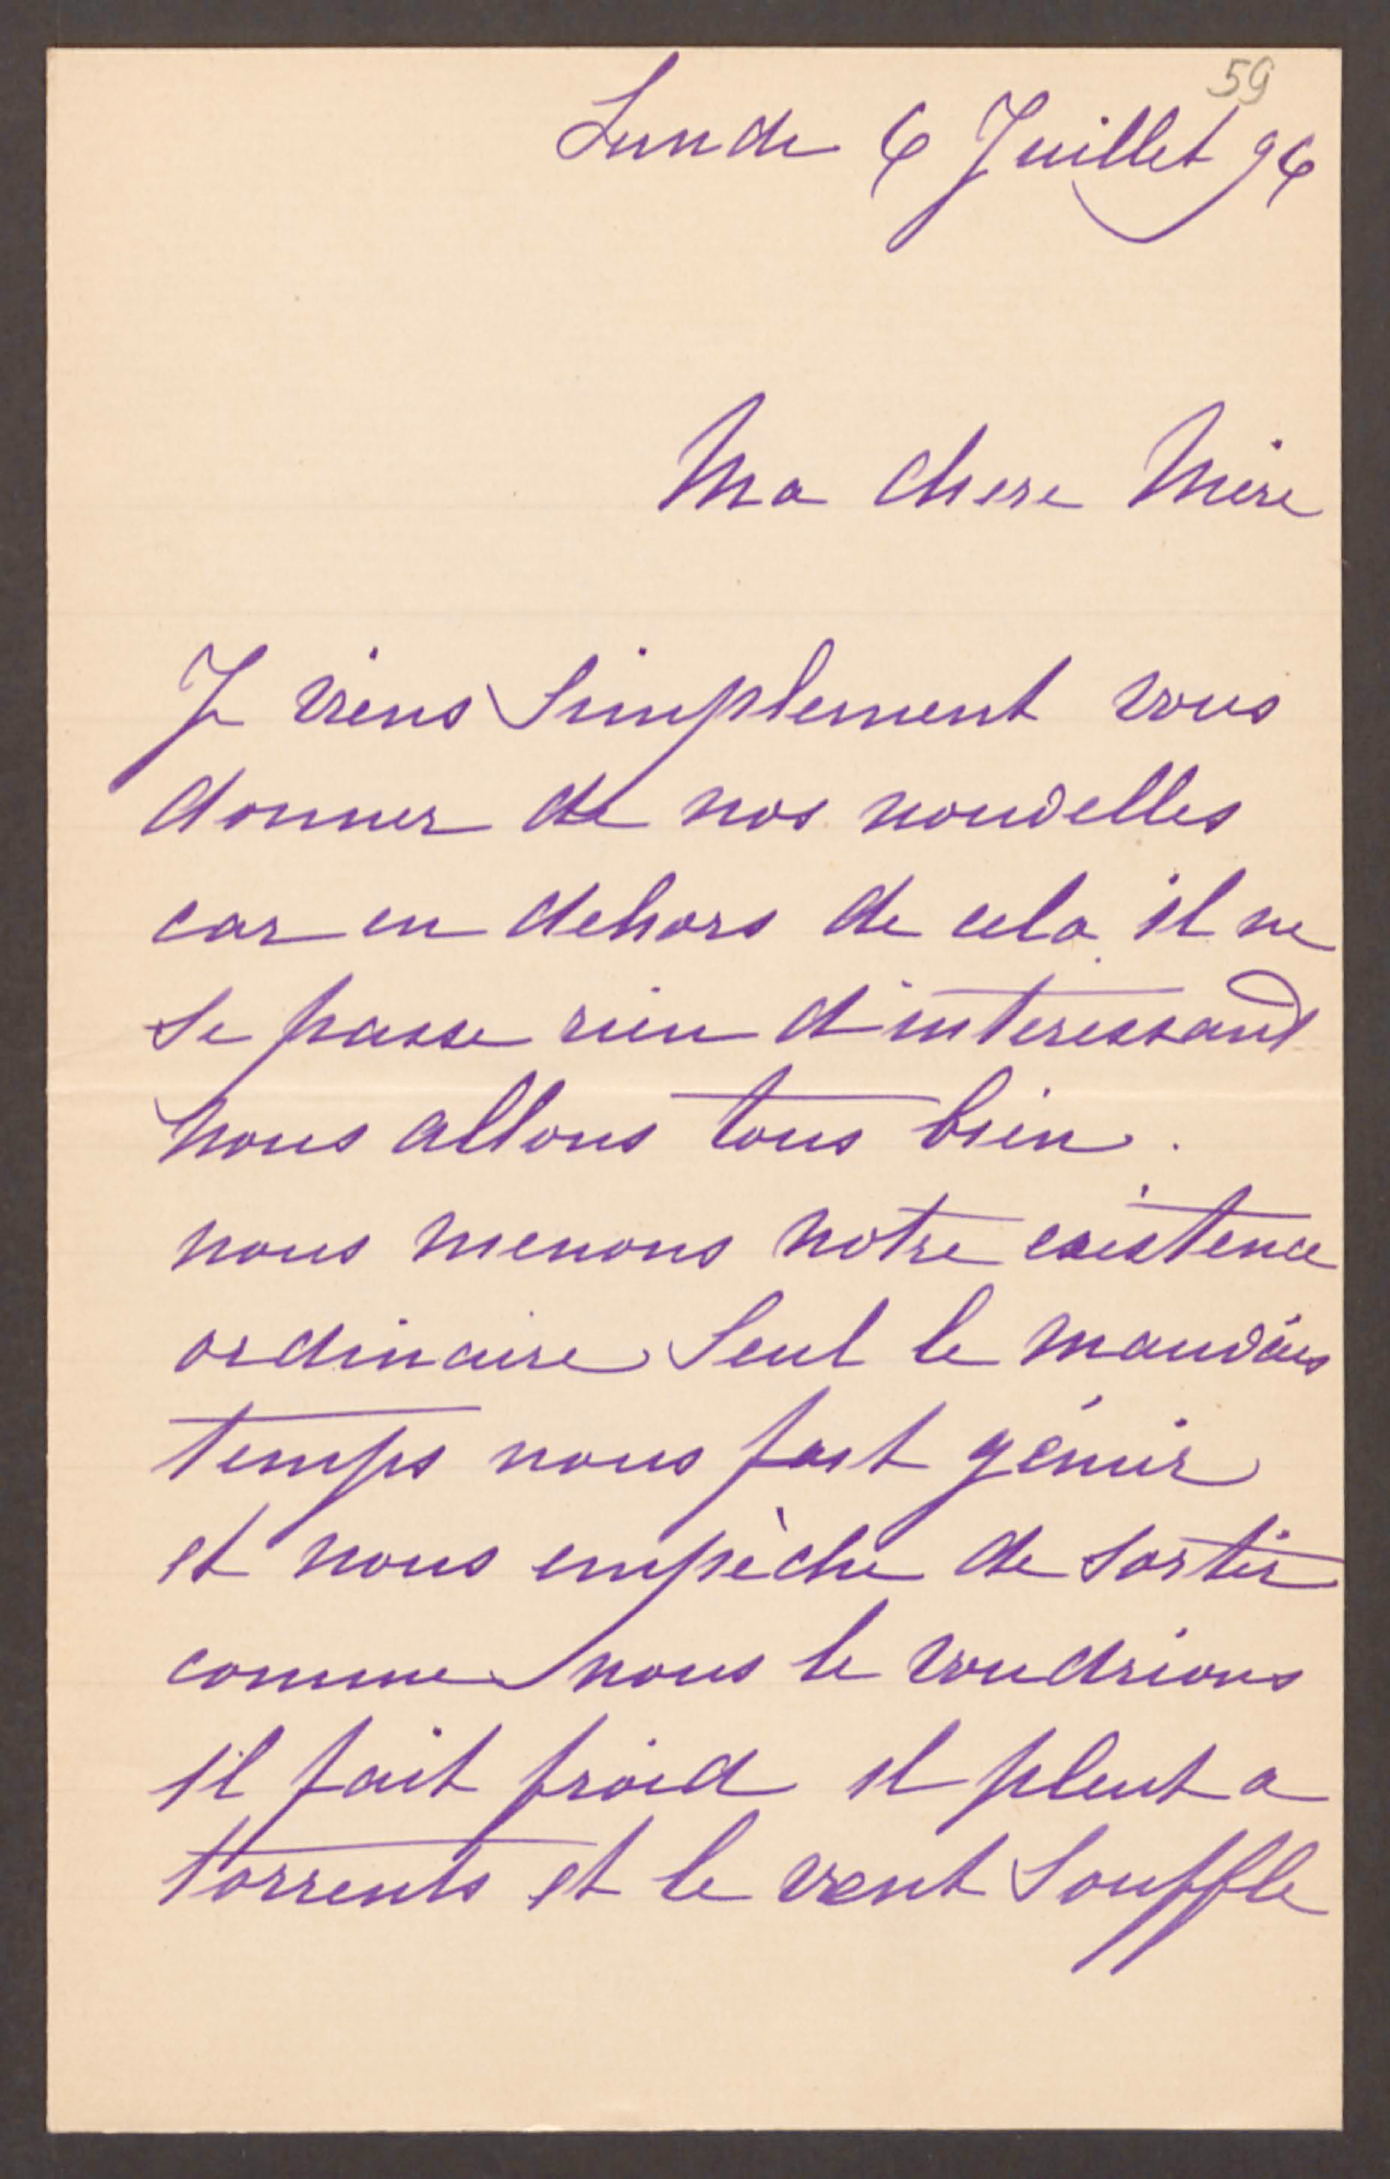 59
Lundi 6 Juillet 96
Ma chere Mère
Je viens simplement vous
donner de nos nouvelles
car en dehors de cela il ne
se passe rien d'interessant
nous allons tous bien.
nous menons notre existence
ordinaire seul le mauvais
temps nous fait gémir
et nous empèche de sortir
comme nous le voudrions
il fait froid il pleut a
torrents et le vent souffle